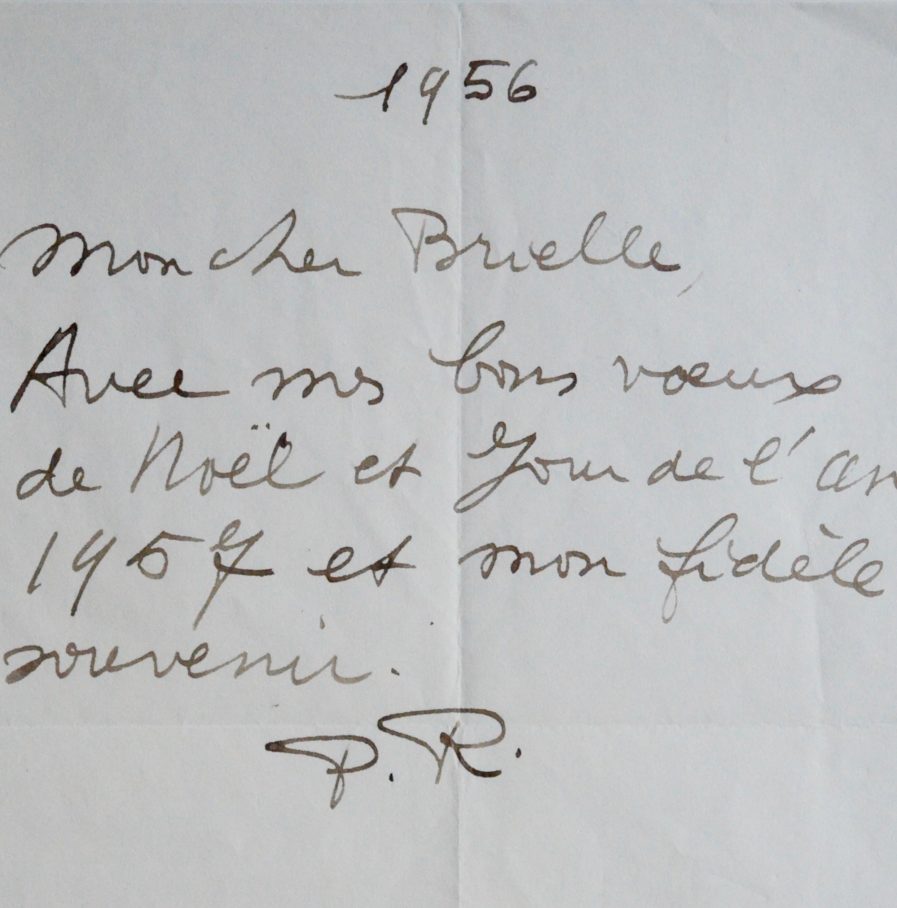 1956
Mon cher Brielle,
Avec mes bons vœux
de Noël et Jour de l'an
1957 et mon fidèle
souvenir.
P. R.